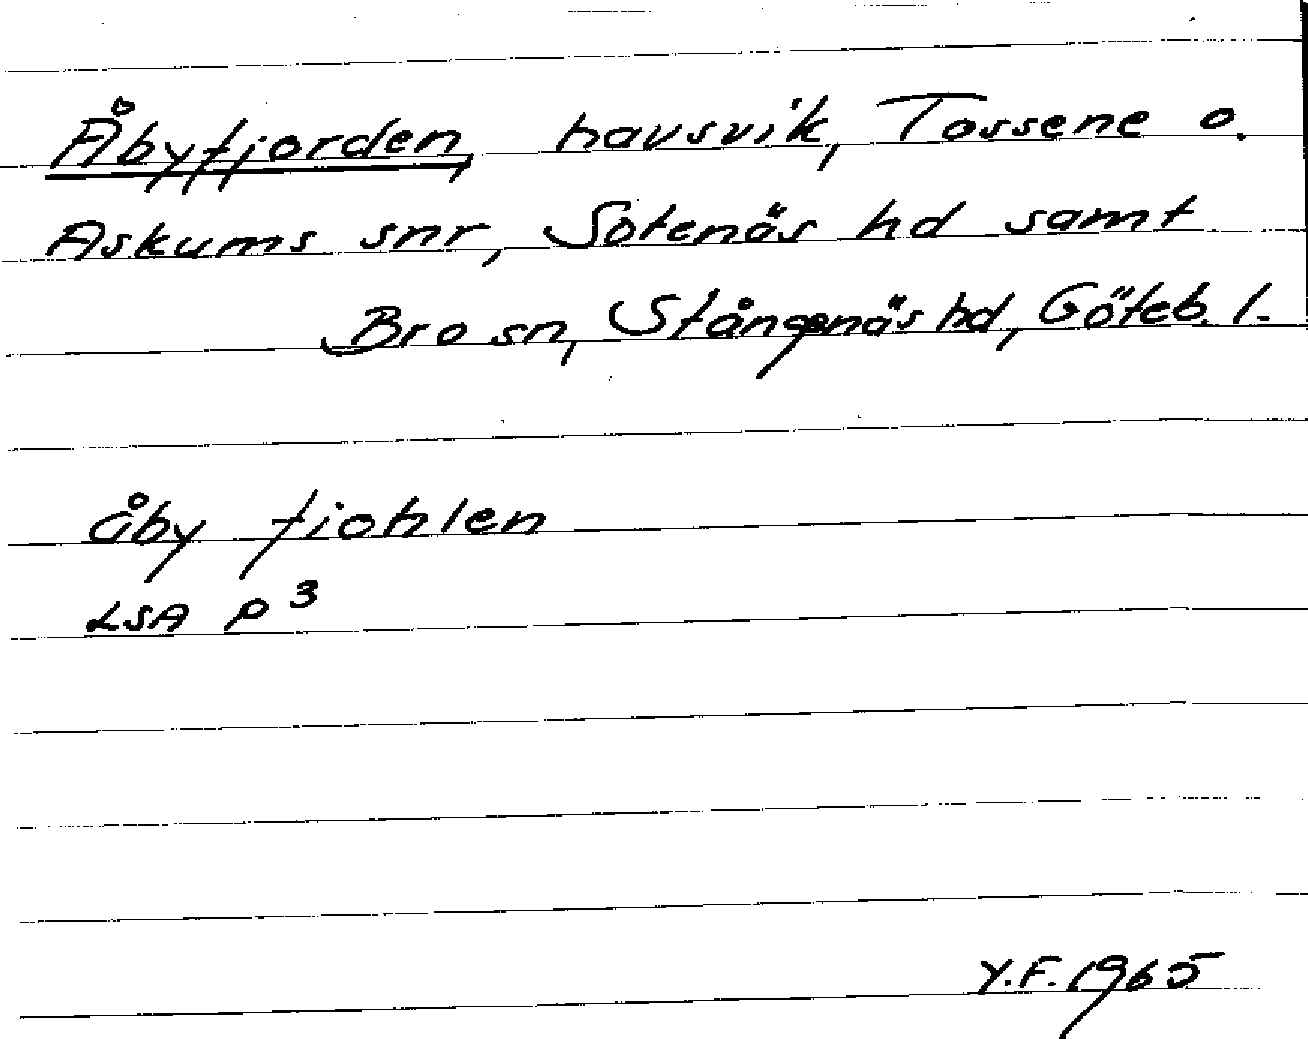 Åbyfjorden, havsvik, Tossene o.
Askums snr, Sotenäs hd samt
Bro sn, Stångenäs hd, Göteb. l.
åby fiohlen
LSA P 3
Y.F. 1965